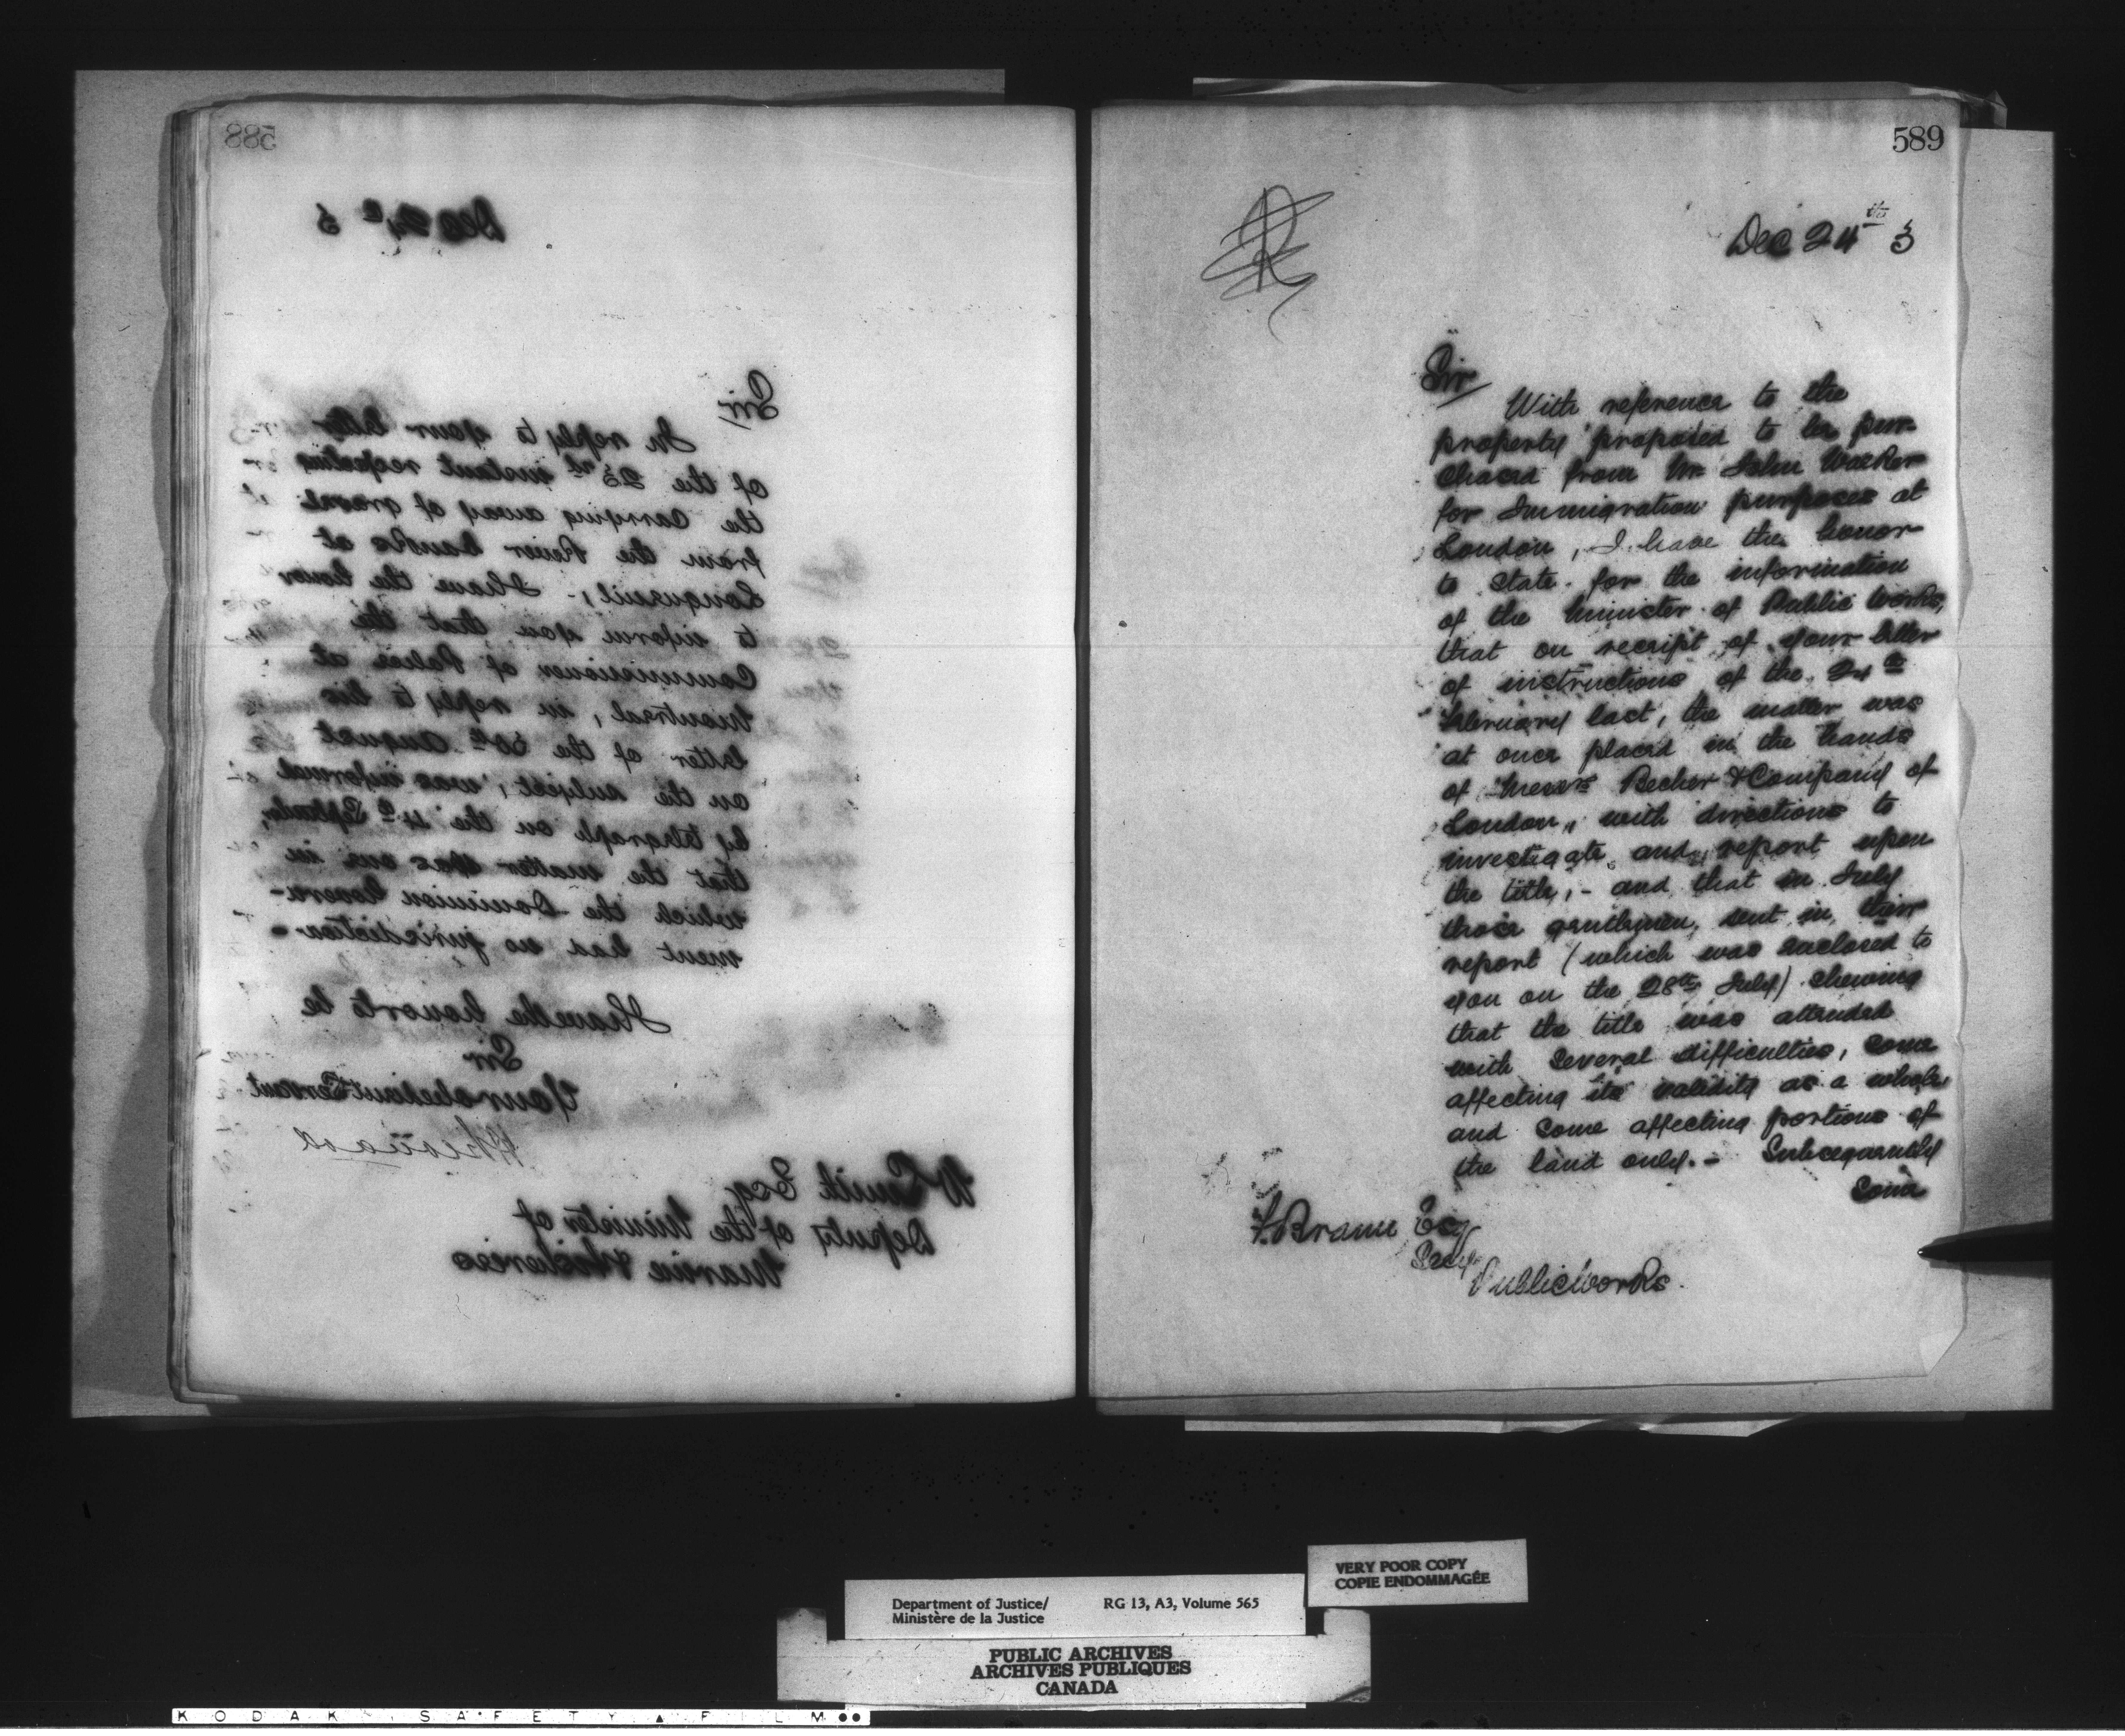 588
Dec 24th 3
Sir
In reply to your letter
of the 23rd instant respecting
the carrying away of gravel
from the River banks at
Longueuil, - I have the honor
to inform you that the
Commissioner of Police at
Montreal, in reply to his
letter of the 30th August
on the subject, was informed
by telegraph on the 4th September,
that the matter was one in
which the Dominion Govern-
ment had no jurisdiction -
I have the honor to be
Sir
Your obedient Servant
W Smith Esq
Deputy of the Minister of
Marine & Fisheries
589
Dec 24th 3
Sir
With reference to the
property proposed to be pur-
chased from Mr John Walker
for Immigration purposes at
London, I have the honor
to state for the information
of the Minister of Public Works,
that on receipt of your letter
of instructions of the 24th
February last, the matter was
at once placed in the hands
of Messrs Becher & Company of
London, with directions to
investigate and report upon
the title, - and that in July
those gentlemen sent in their
report (which was enclosed to
you on the 28th July) shewing
that the title was attended
with several difficulties, some
affecting its validity as a whole,
and some affecting portions of
the land only. - Subsequently
some
F. Braun Esq
Secy
Public Works.
VERY POOR COPY
COPIE ENDOMMAGÉE
Department of Justice/ RG 13, A3, Volume 565
Ministère de la Justice
PUBLIC ARCHIVES
ARCHIVES PUBLIQUES
CANADA
KODAK SAFETY FILM